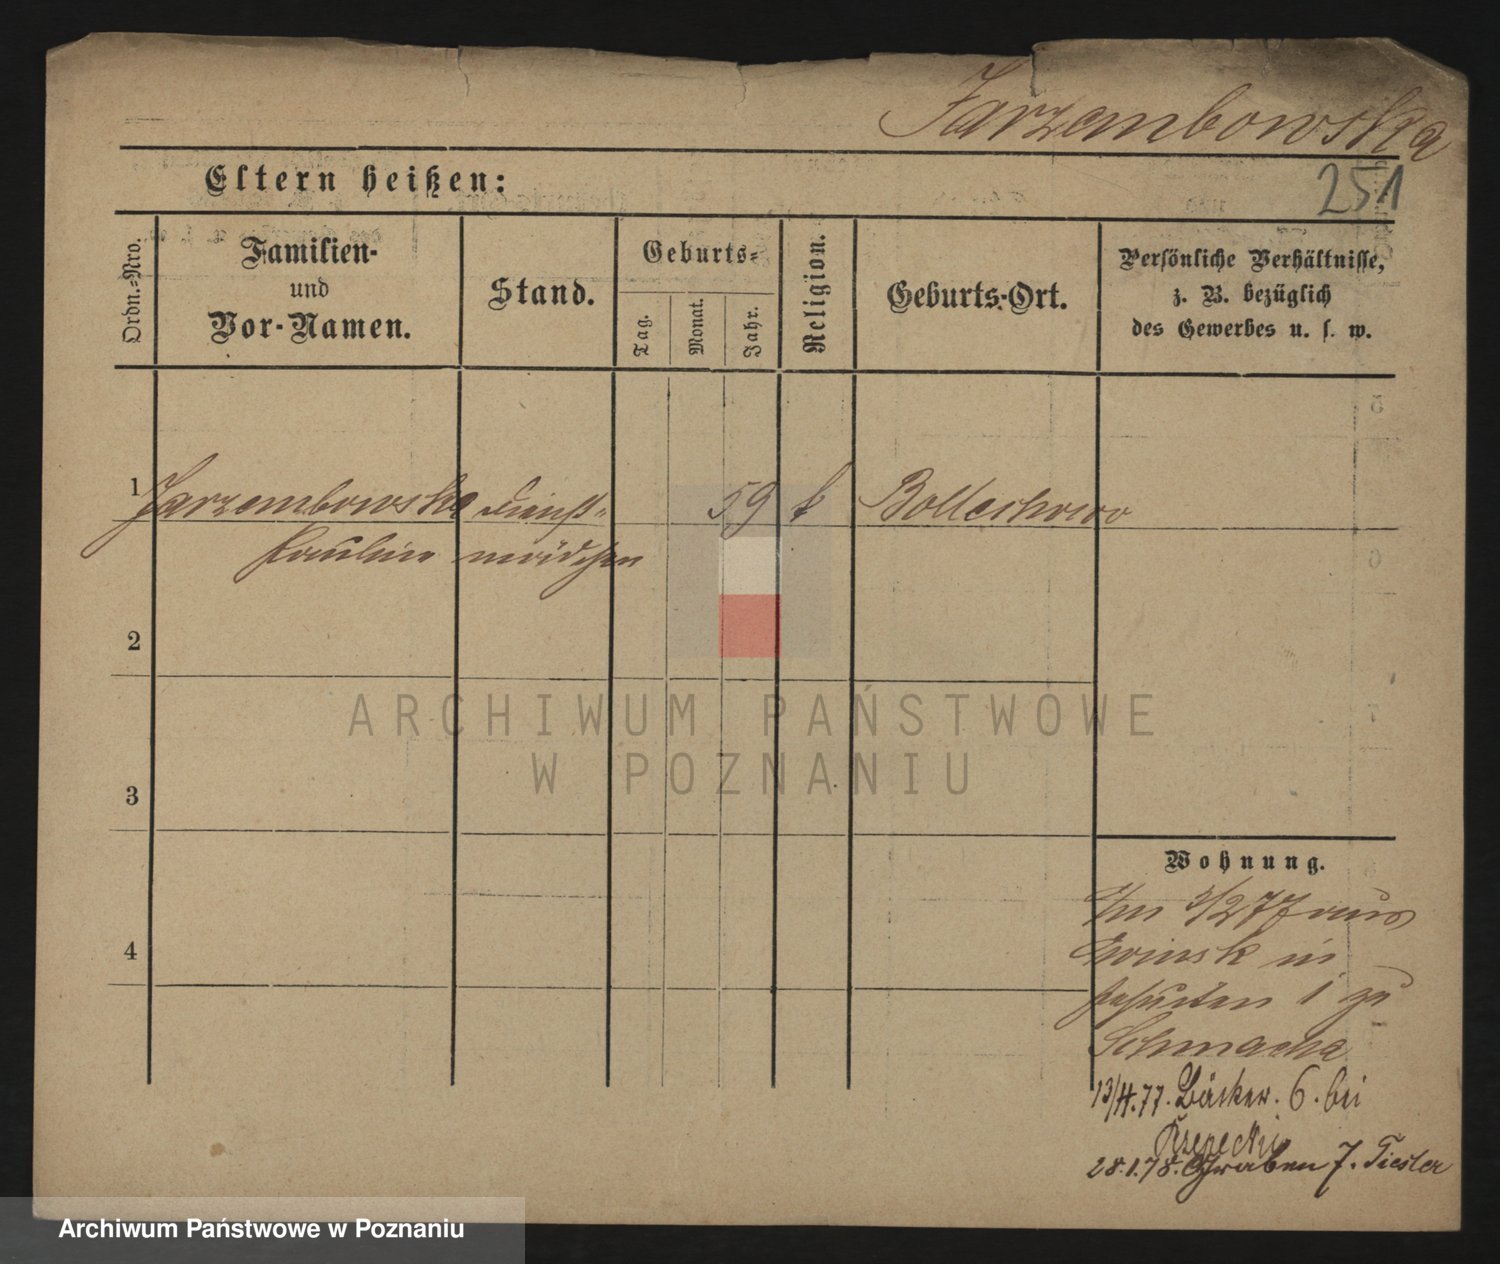 Jarzembowska
251
Eltern heißen:
Ordn.-Nro.
Familien-
und
Vor-Namen.
Stand.
Geburts-
Tag.
Monat.
Jahr.
Religion.
Geburts-Ort.
Persönliche Verhältnisse,
z. B. bezüglich
des Gewerbes u. s. w.
1 Jarzembowska Dienst- 59 k Bollechowo
Pauline mädchen
2
3
4
ARCHIWUM PAŃSTWOWE
W POZNANIU
Wohnung.
3/2 77 aus
in
1 zu
Schmacha
13/4.77. Bäcker. 6. bei
28.1.78. Graben 7. Tiesler
Archiwum Państwowe w Poznaniu